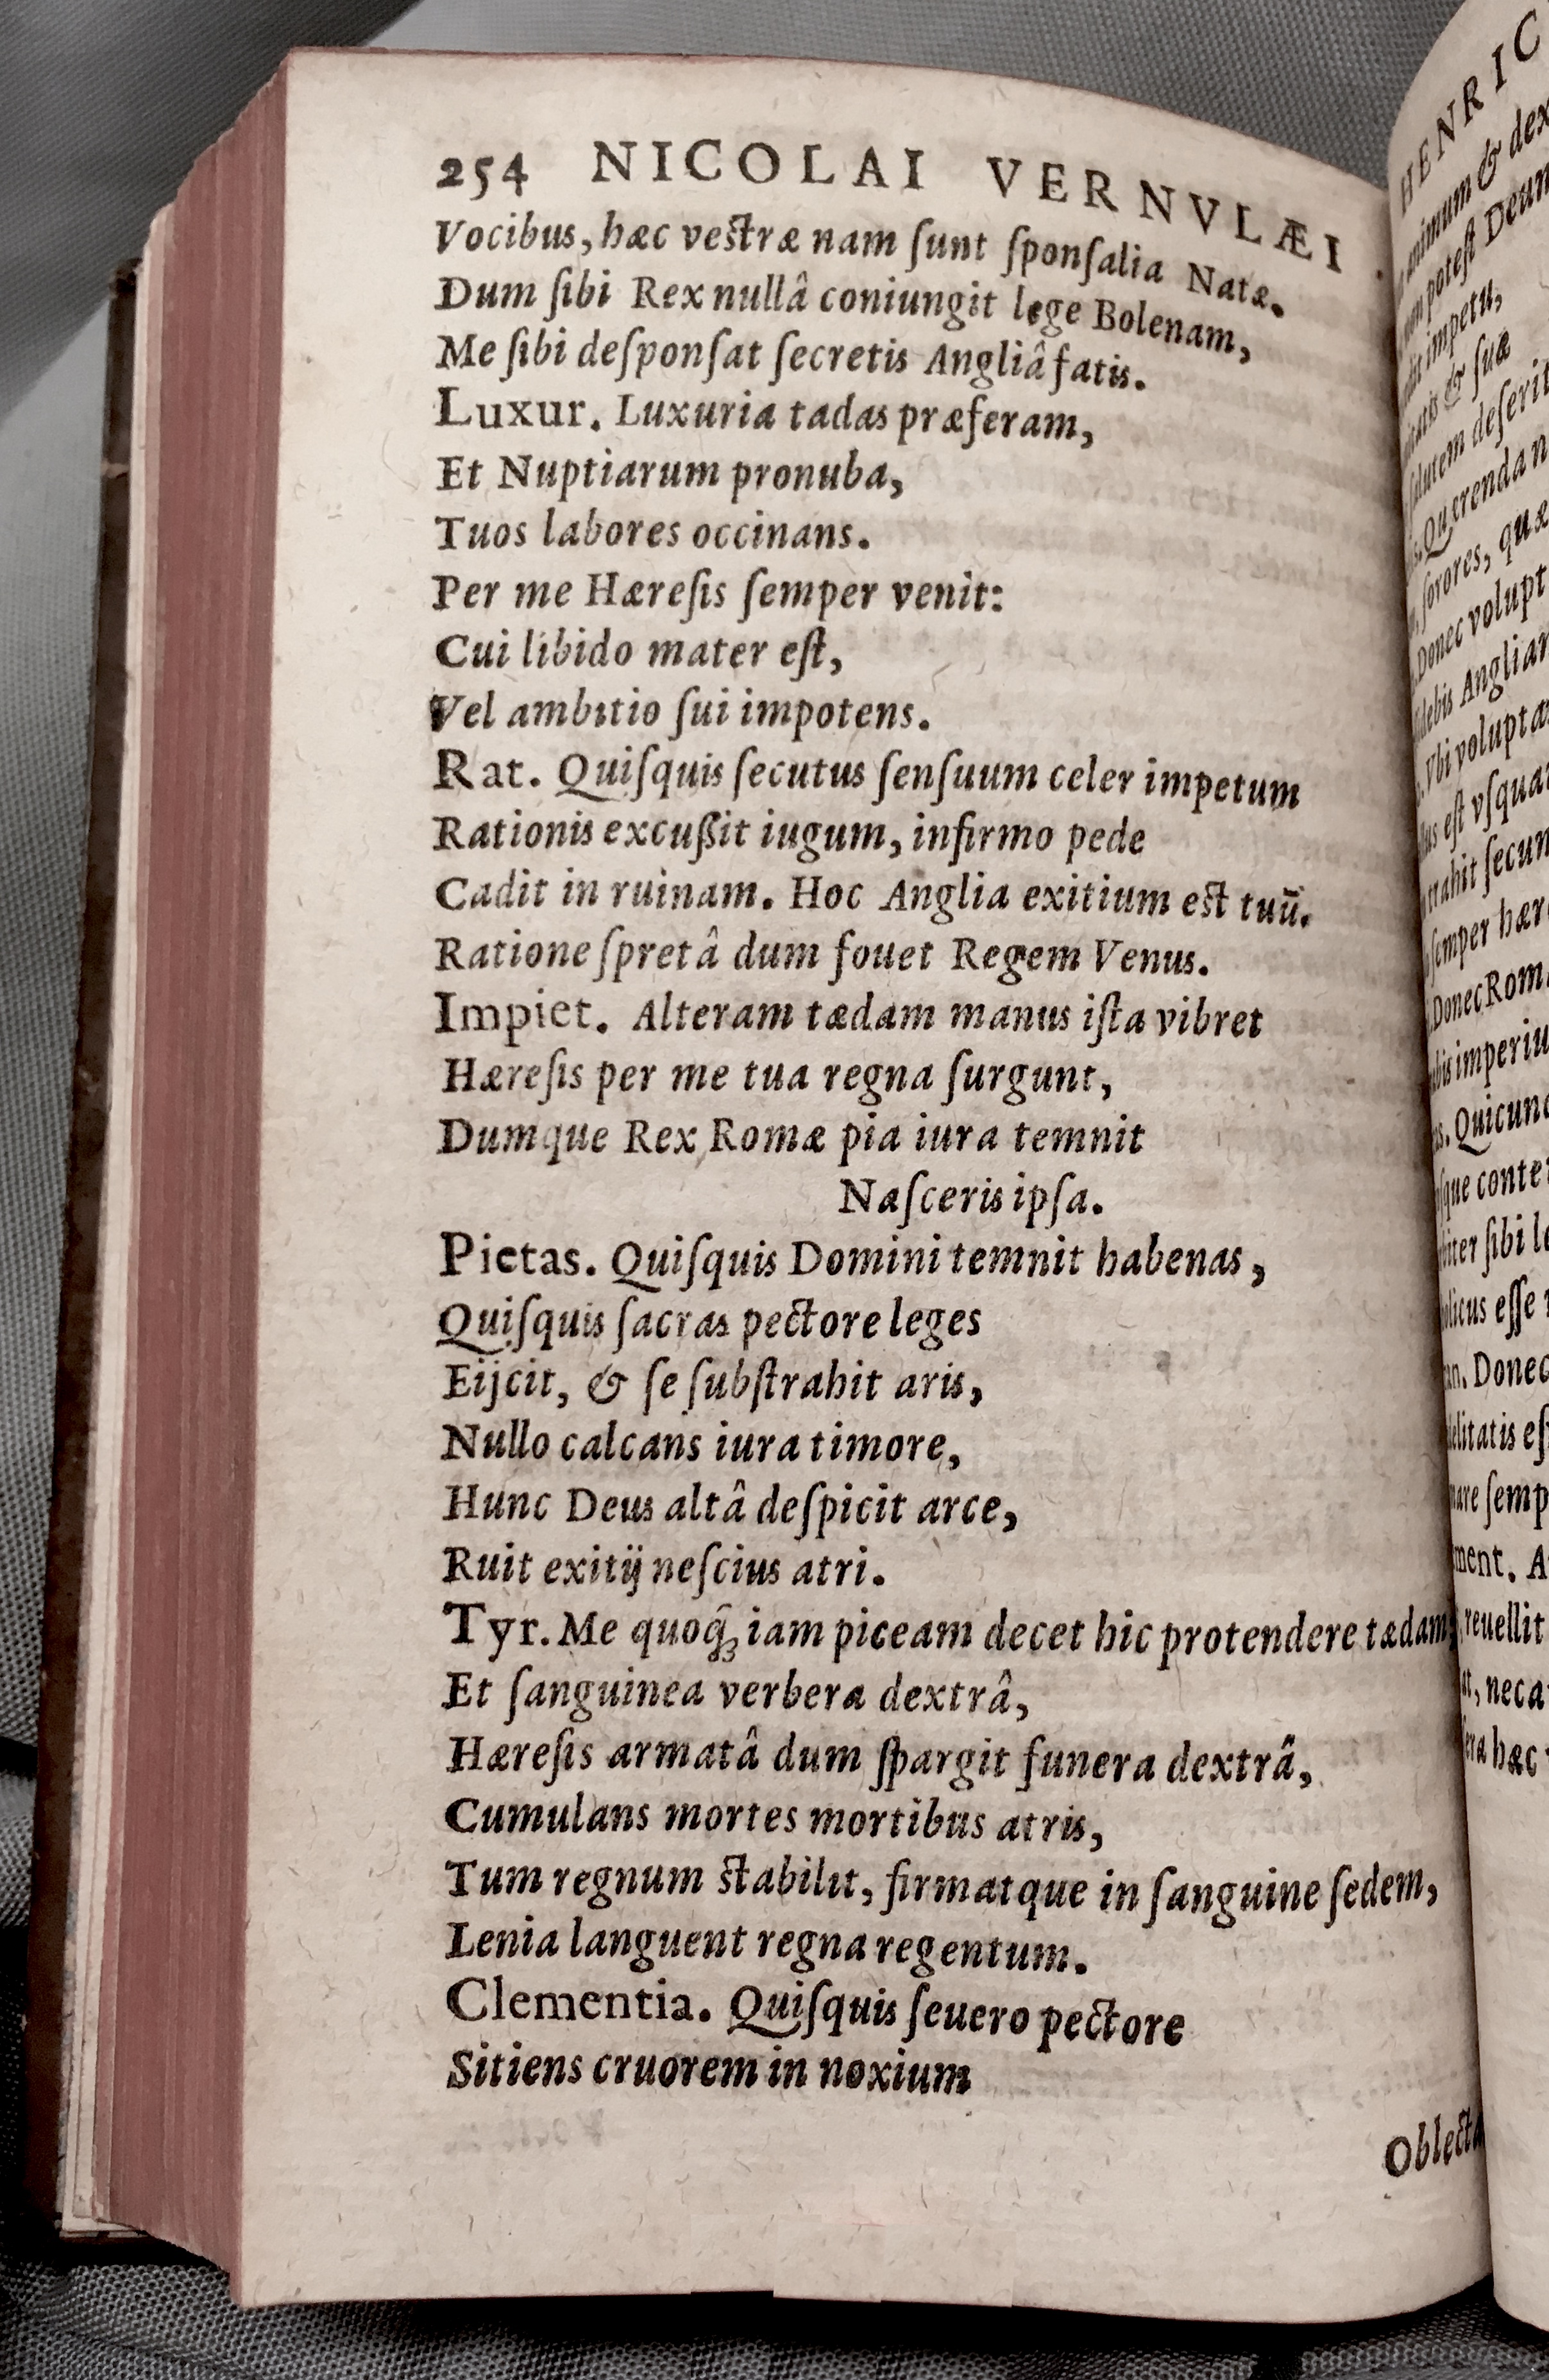 254 NICOLAI VERNVLÆI
Vocibus, hæc vestræ nam ſunt ſponſalia Natæ.
Dum ſibi Rex nullâ coniungit lege Bolenam,
Me ſibi deſponſat ſecretis Angliâ fatis.
Luxur. Luxuria tadas præferam,
Et Nuptiarum pronuba,
Tuos labores occinans.
Per me Hæreſis ſemper venit:
Cui libido mater eſt,
Vel ambitio ſui impotens.
Rat. Quiſquis ſecutus ſenſuum celer impetum
Rationis excußit iugum, infirmo pede
Cadit in ruinam. Hoc Anglia exitium est tuū.
Ratione ſpretâ dum fouet Regem Venus.
Impiet. Alteram tædam manus iſta vibret
Hæreſis per me tua regna ſurgunt,
Dumque Rex Romæ pia iura temnit
Naſceris ipſa.
Pietas. Quiſquis Domini temnit habenas,
Quiſquis ſacras pectore leges
Eijcit, & ſe ſubſtrahit aris,
Nullo calcans iura timore,
Hunc Deus altâ deſpicit arce,
Ruit exitij neſcius atri.
Tyr. Me quoq̃; iam piceam decet hic protendere tædam,
Et ſanguinea verbera dextrâ,
Hæreſis armatâ dum ſpargit funera dextrâ,
Cumulans mortes mortibus atris,
Tum regnum stabilit, firmatque in ſanguine ſedem,
Lenia languent regna regentum.
Clementia. Quiſquis ſeuero pectore
Sitiens cruorem in noxium
Oblecta
HENRIC
animum & dex
poteſt Deum
impetu,
& ſuæ
deſerit
Quærenda n
ſorores, quæ
Donec volupt
Anglian
Vbi volupta
eſt vſquam
ſecun
ſemper hær
Donec Rom
imperiu
Quicunq
conte
ſibi le
eſſe
Donec
eſ
ſemp
A
reuellit
neca
hæc